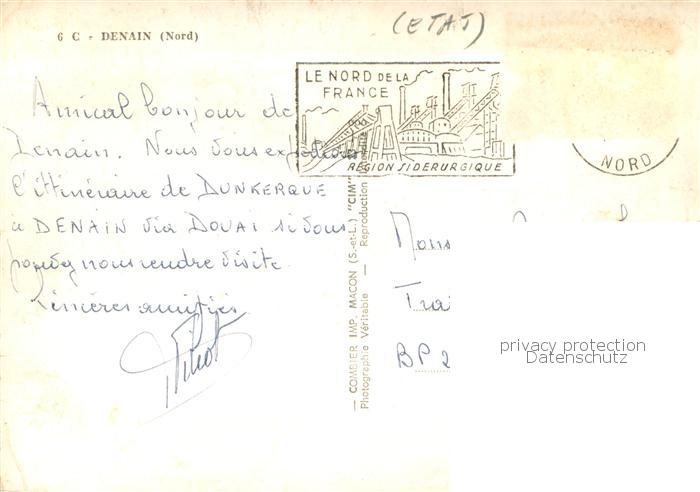 6 C - DENAIN (Nord)
(ETAT)
LE NORD DE LA
FRANCE
RÉGION SIDERURGIQUE
NORD
Amical bonjour de
Denain. Nous vous expédierons
l'itinéraire de DUNKERQUE
à DENAIN via DOUAI si vous
pouvez nous rendre visite.
Sincères amitiés
— COMBIER IMP. MACON (S.-et-L.) "CIM"
Photographie Véritable — Reproduction
Mons
Tra
BP 2
privacy protection
Datenschutz